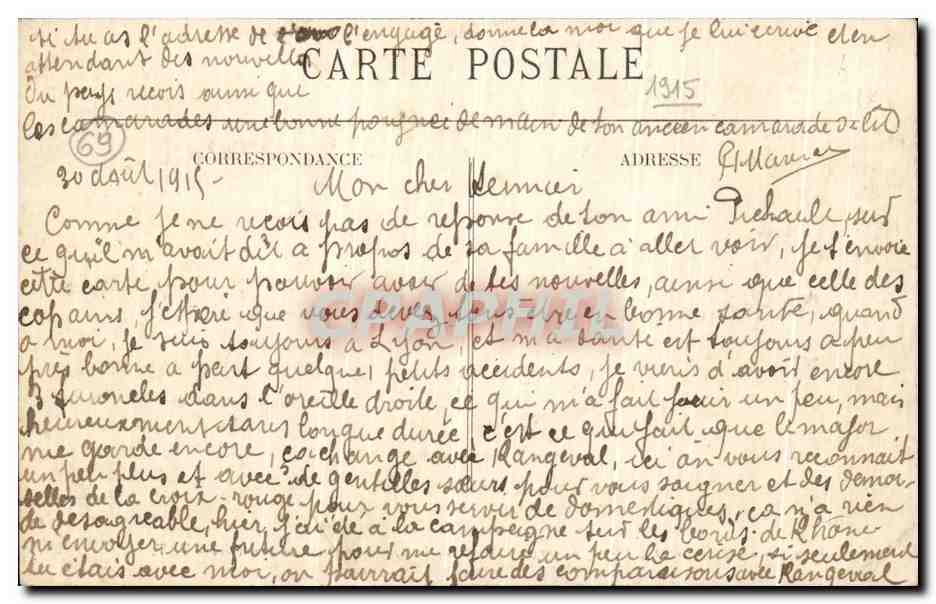 si tu as l'adresse de l'engagé, donne la moi que je lui ecrive et en
attendant des nouvelles
CARTE POSTALE
Du pays recois ainsi que
1915
les camarades une bonne poignée de main de ton ancien camarade de lit
69
CORRESPONDANCE
ADRESSE
30 août 1915
Mon cher
Comme je ne reçois pas de reponse de ton ami Pichault, sur
ce qu'il m'avait dit a propos de sa famille a aller voir, je t'envoie
cette carte pour pouvoir avoir de tes nouvelles, ainsi que celle des
copains, que vous devez tous etre en bonne santé, quand
a moi, je suis toujours a Lyon, et ma santé est toujours a peu
CPARAMA
près bonne a part quelques petits accidents, je viens d'avoir encore
3 furoncles dans l'oreille droite, ce qui m'a fait un peu, mais
heureusement sans longue durée c'est ce qui fait que le major
me garde encore, ca change avec Rangeval, ici on vous reconnait
un peu plus et avec de gentilles sœurs pour vous soigner et des demoi-
selles de la croix-rouge pour vous servir de domestiques, ca n'a rien
de desagreable, hier, j'ai été à la campagne sur les bords de Rhône
m'envoyer une friture pour me refaire un peu la cerise, si seulement
tu étais avec moi, on pourrait faire des comparaisons avec Rangeval